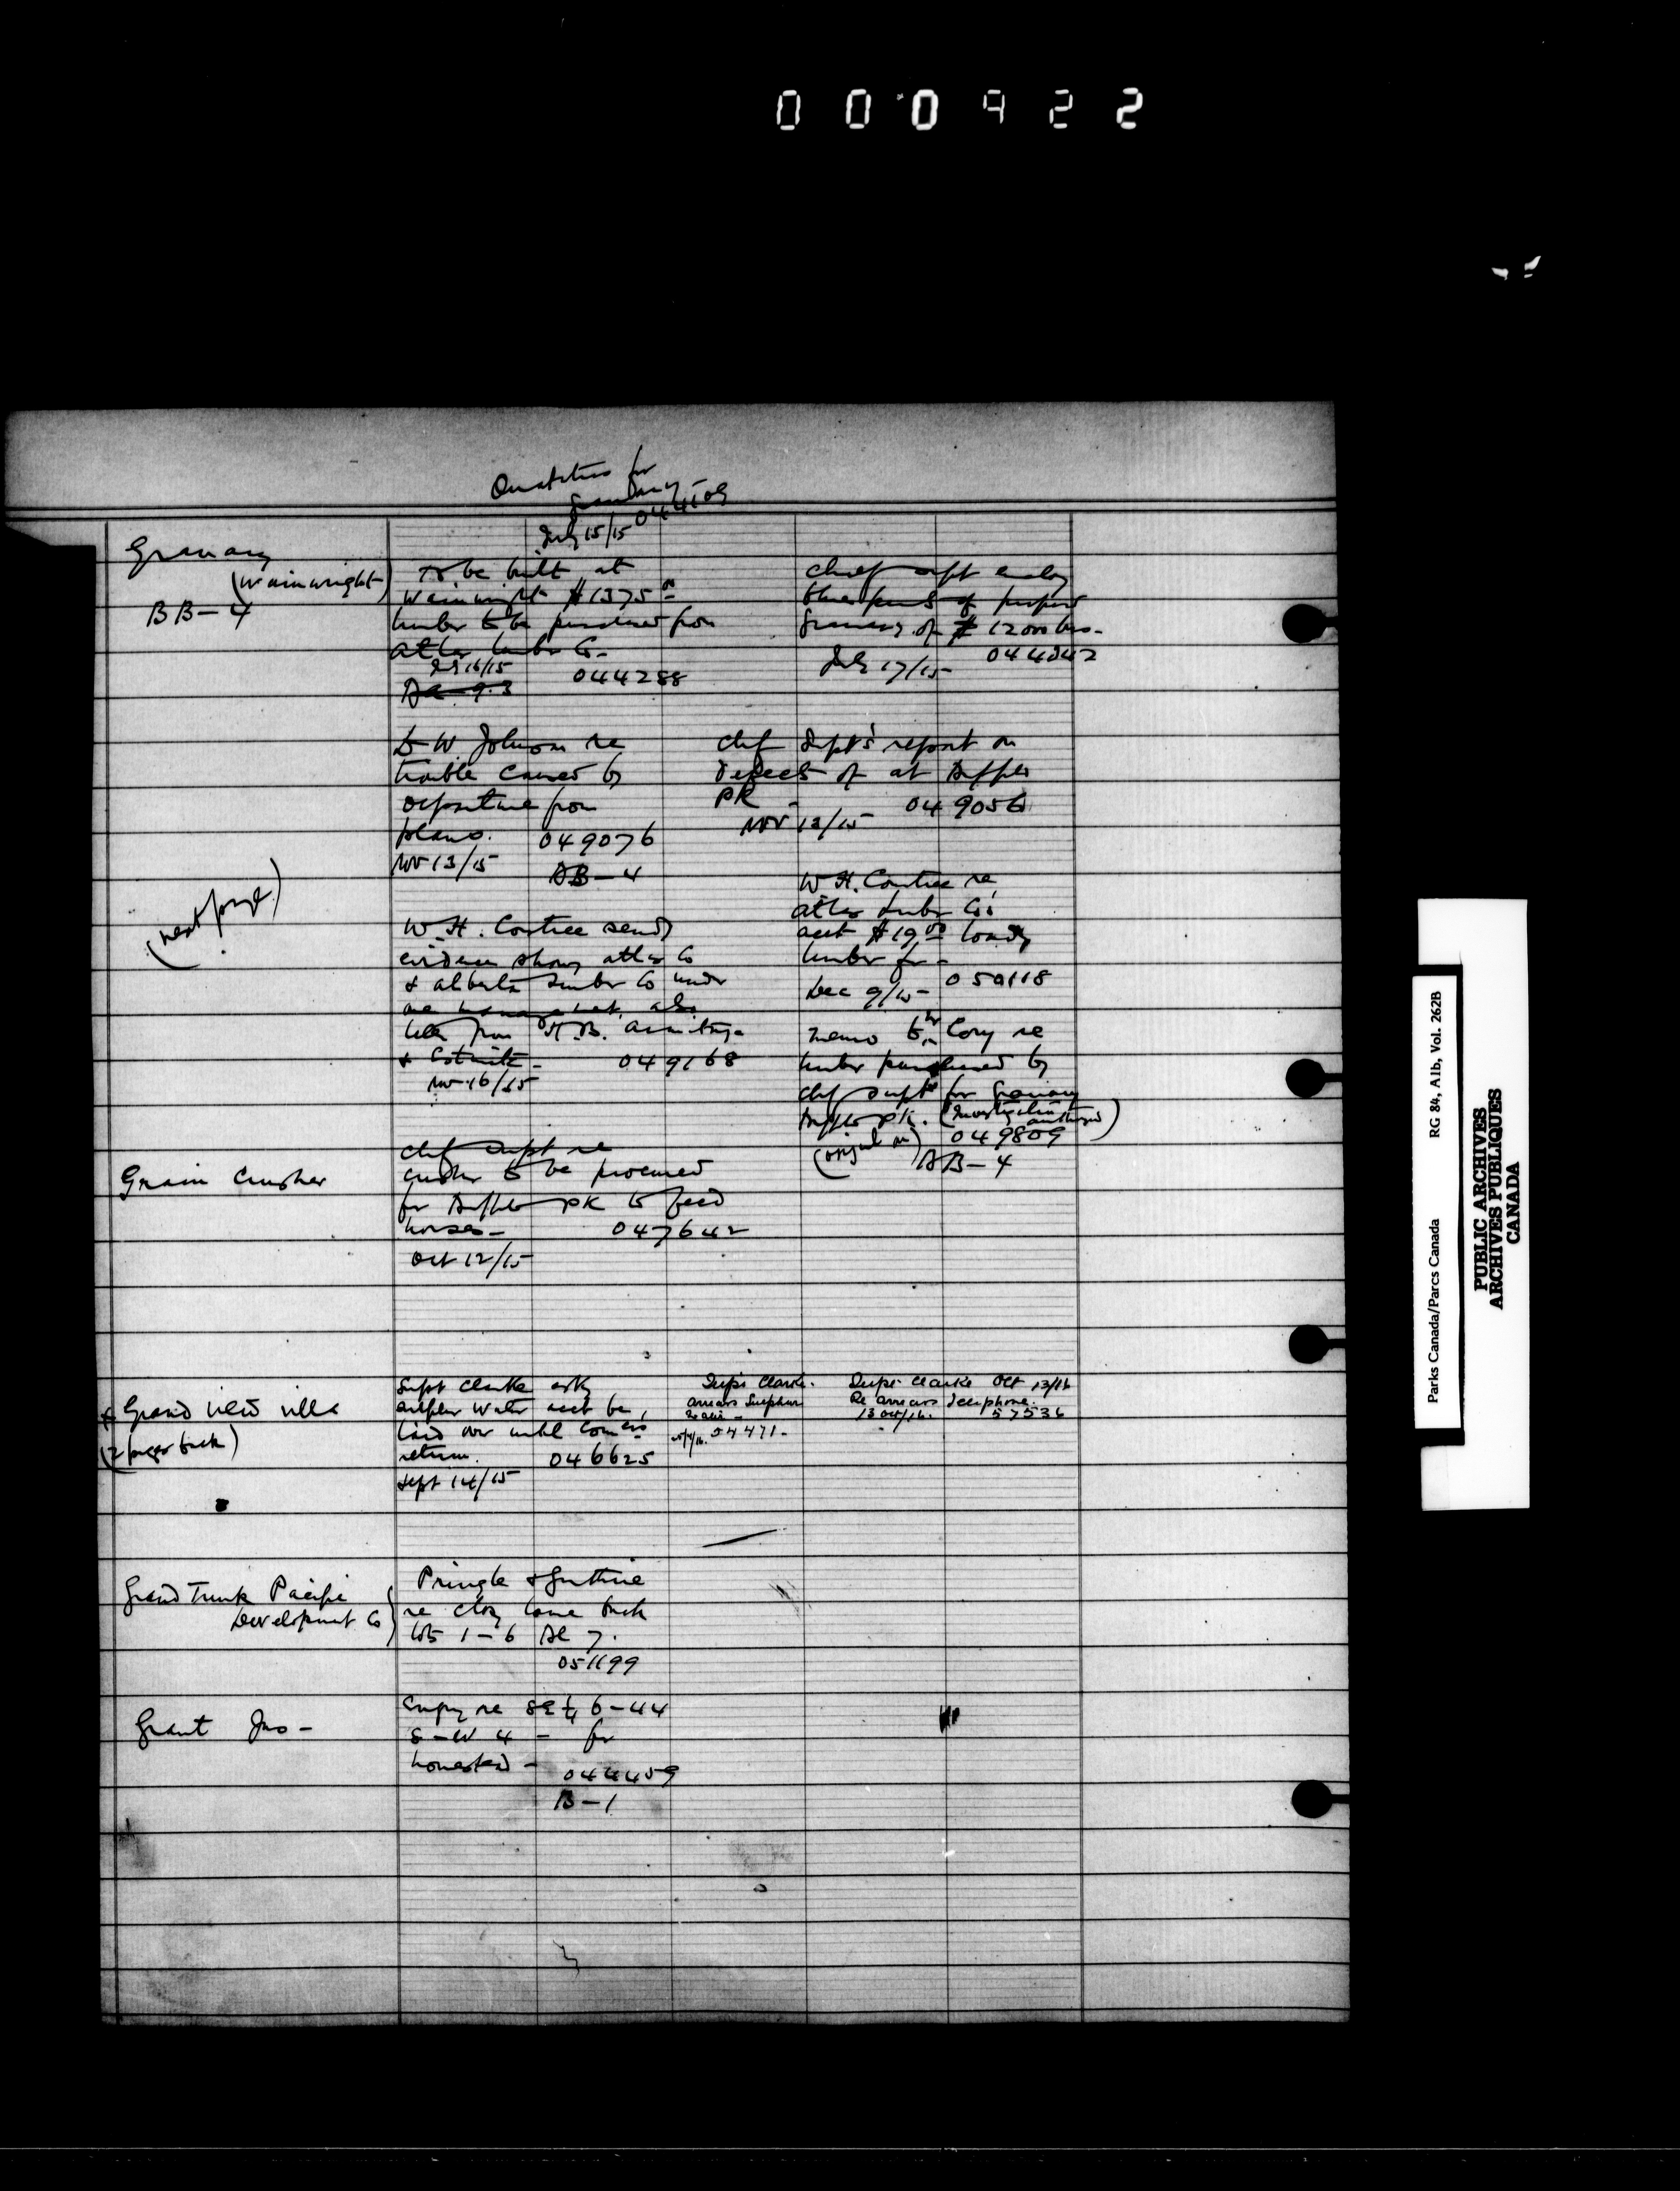 000922
for
July 15/15
Granary
(Wainwright)
BB-4
To be built at
Wainwright $1375 00
lumber to be purchased from
Atlas lumber Co-
July 16/15
044288
Chief Supt encloy
blue prints of proposed
Granary of 12000 bus-
July 17/15
D W Johnson re
trouble caused by
departure from
plans. 049076
Nov 13/15
AB-4
Chf Supt's report on
defects of at Buffalo
PK - 049056
Nov 13/15
(next page)
W. H. Contree sends
evidence showg Atlas Co
& Alberta Lumber Co under
one management, also
letter from H.B. Armitage
& Estimate - 049168
Nov 16/15
W. H. Contree re
Atlas Lumber Co's
acct $19.00 loadg
lumber for -
Dec 9/15 - 050118
memo to Mr Cory re
lumber purchased by
Chf Supt for Granary
Buffalo Pk. (Investigation
authorized)
(original on) 049809
AB-4
Grain Crusher
Chf Supt re
crusher to be procured
for Buffalo PK to feed
horses - 047642
Oct 12/15
Grand View Villa
(2 pages back)
Supt Clarke asks
sulphur water acct be
laid over until Comrs
return. 046625
Sept 14/15
Supt Clarke.
arrears Sulphur
Water -
54471-
Supt Clarke Oct 13/16
Re arrears telephone.
13 Oct/16. 57536
Grand Trunk Pacific
Development Co
Pringle & Guthrie
re closg lane back
lots 1-6 Bl 7.
051199
Grant Jno -
Enqry re SE 1/4 6-44
8-W 4 - for
homestead - 044459
B-1
Parks Canada/Parcs Canada RG 84, A1b, Vol. 262B
PUBLIC ARCHIVES
ARCHIVES PUBLIQUES
CANADA